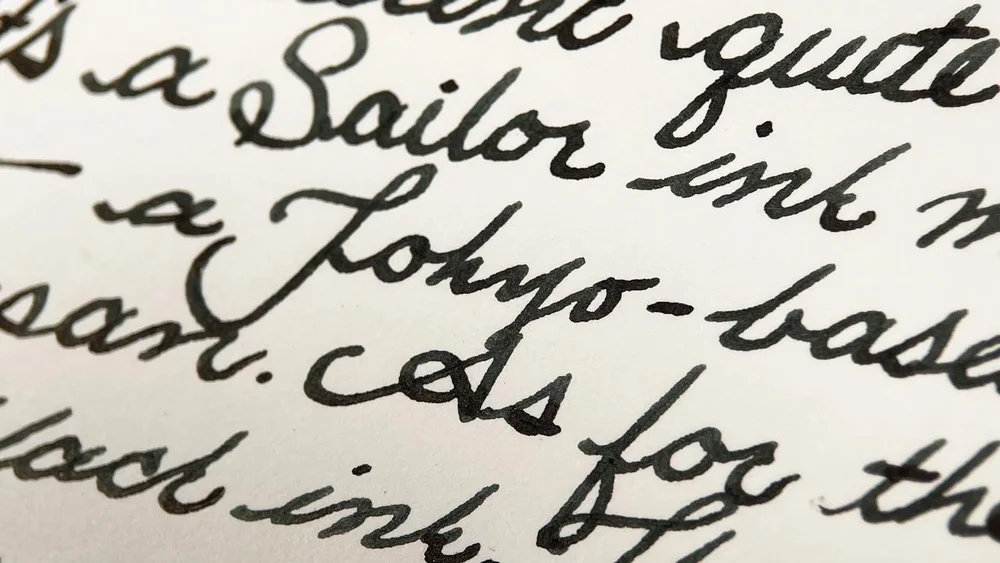 quote
's a Sailor ink m
— a Tokyo-base
san. As for the
lack ink